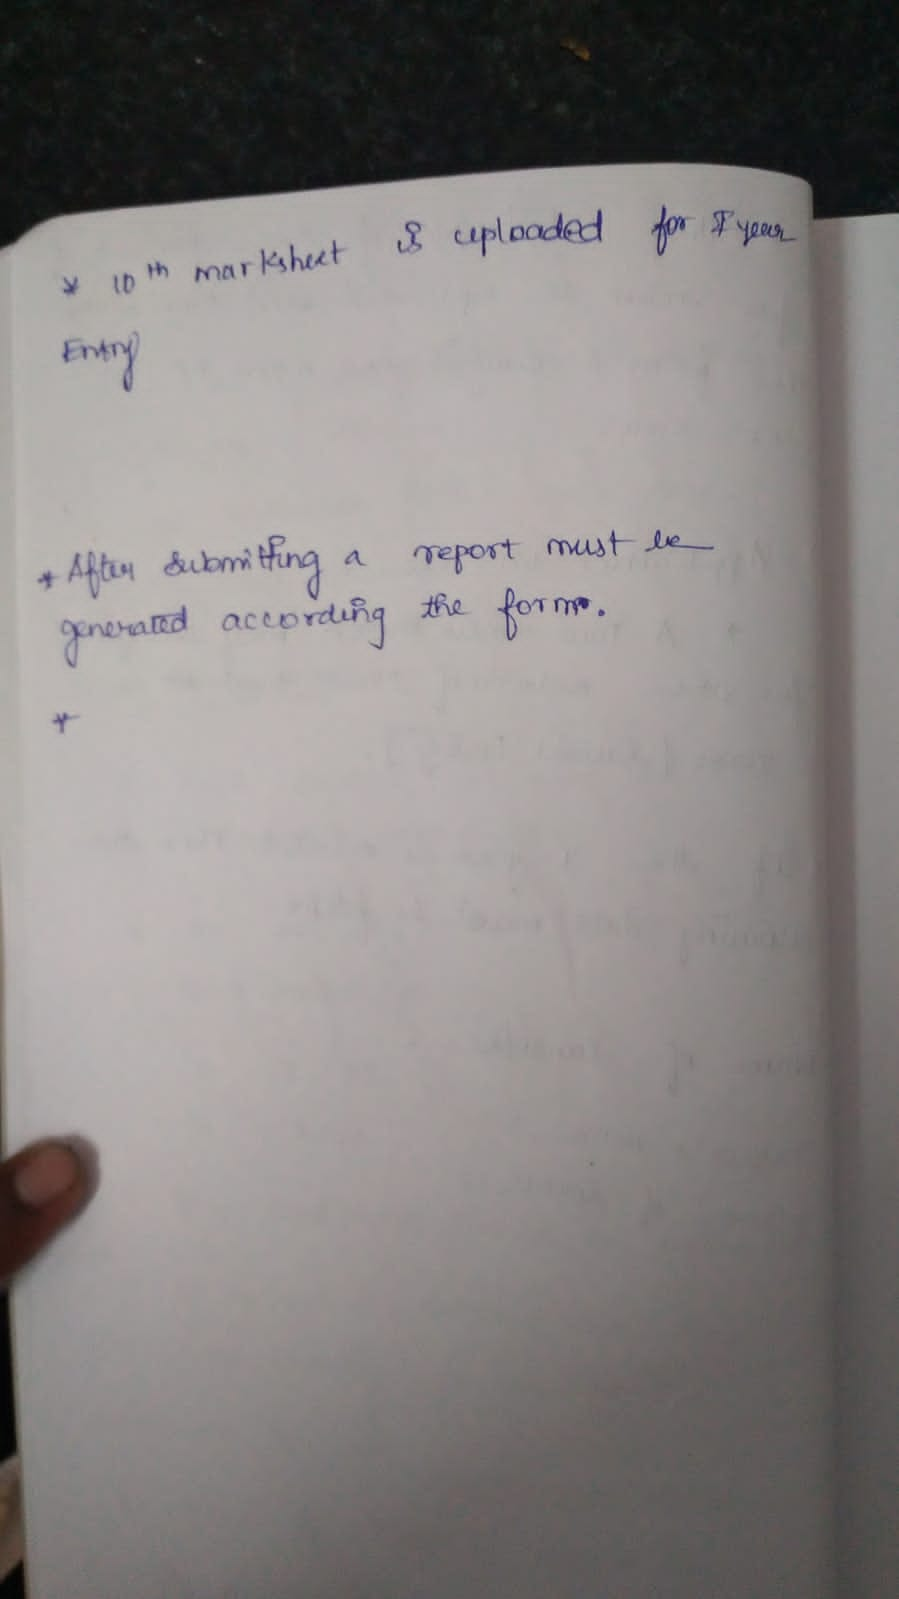 * 10th marksheet is uploaded for I year
Entry
* After submitting a report must be
generated according the form.
*